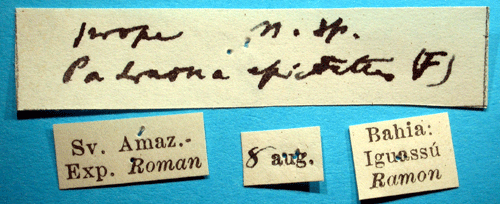 prope n. sp.
Padraona epictetus (F)
Sv. Amaz.-
Exp. Roman
8 aug.
Bahia:
Iguassú
Ramon